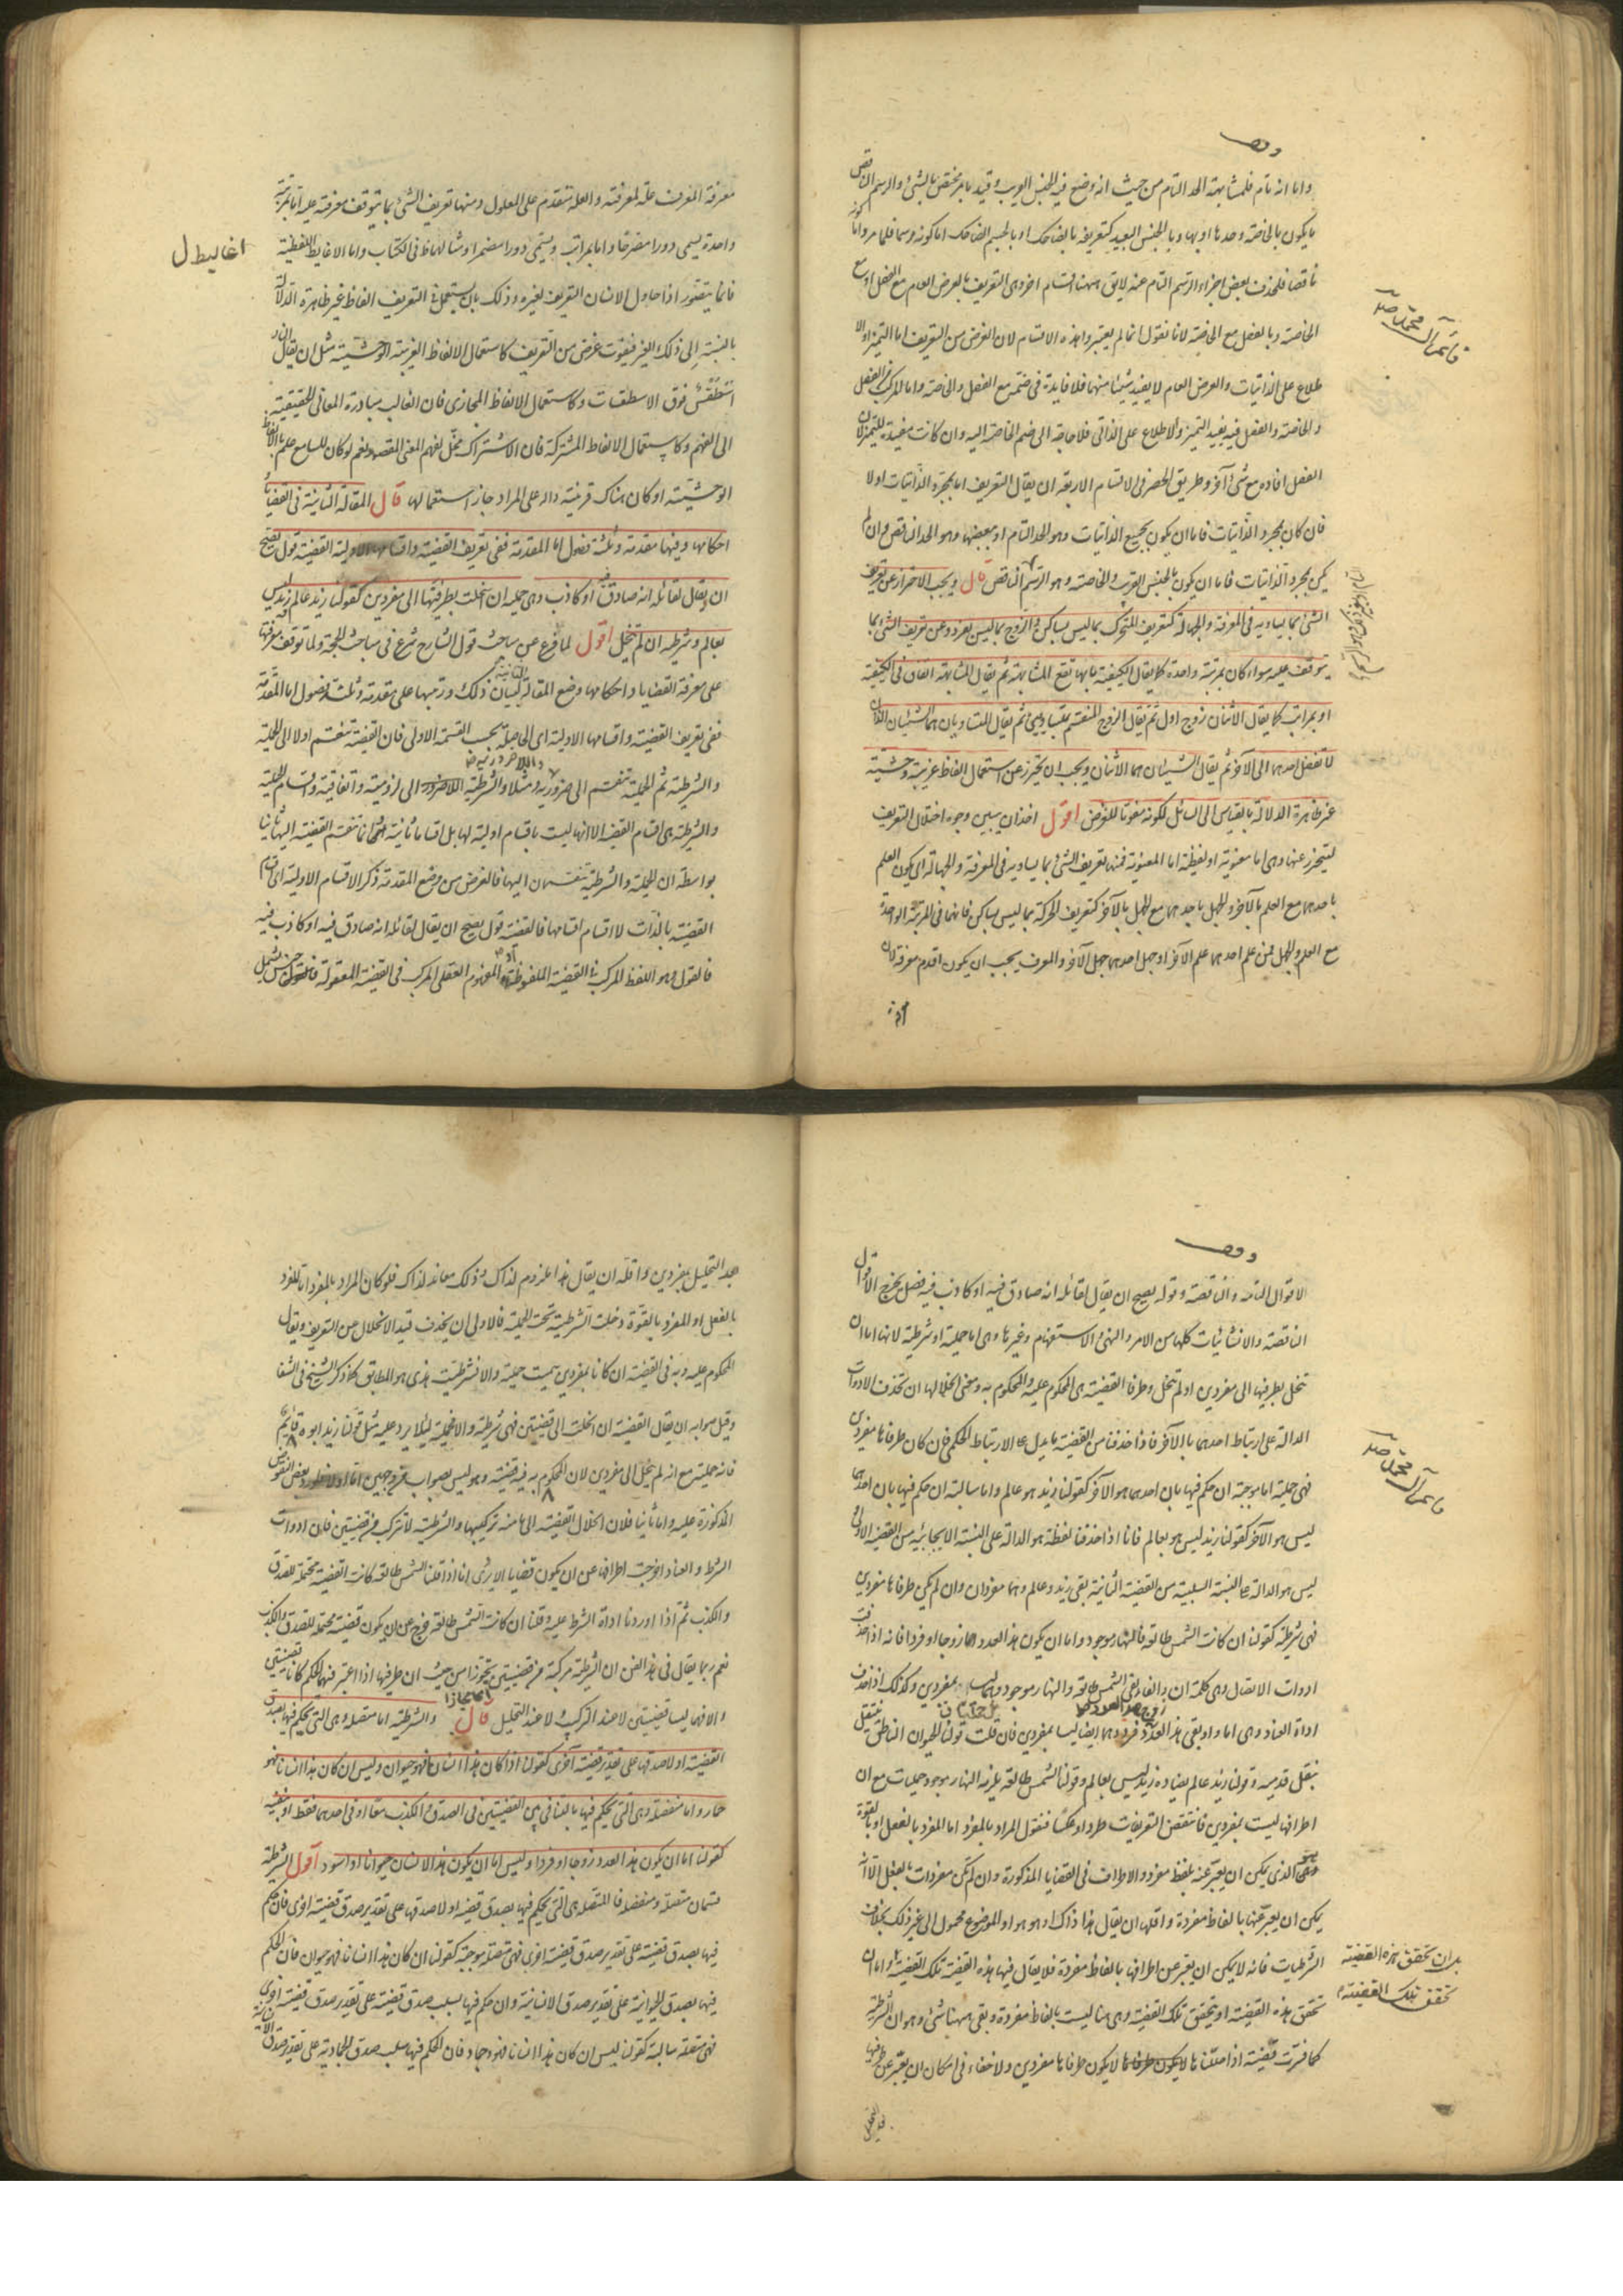 وقف
واما انه تام فلمشابهته الحد التام من حيث انه وضع فيه الجنس القريب وقيد بامر مختص بالشئ والرسم الناقص
ما يكون بالخاصة وحدها او بها وبالجنس البعيد كتعريفه بالضاحك او بالجسم الضاحك اما كونه رسما فلما مر واما كونه
ناقصا فلحذف بعض اجزاء الرسم التام عنه لايق ههنا اقسام اخر وهى التعريف بالعرض العام مع الفصل او مع
الخاصة وبالفصل مع الخاصة لانا نقول انما لم يعتبروا هذه الاقسام لان الغرض من التعريف اما التميز او الا
طلاع على الذاتيات والعرض العام لا يفيد شيئا منهما فلا فايدة فى ضمه مع الفصل والخاصة واما المركب من الفصل
والخاصة والفصل فيه يفيد التميز والاطلاع على الذاتى فلا حاجة الى ضم الخاصة اليه وان كانت مفيدة للتميز لان
الفصل افاده مع شئ آخر وطريق الحصر فى الاقسام الاربعة ان يقال التعريف اما بمجرد الذاتيات اولا
فان كان بمجرد الذاتيات فاما ان يكون بجميع الذاتيات وهو الحد التام او ببعضها وهو الحد الناقص وان لم
يكن بمجرد الذاتيات فاما ان يكون بالجنس القريب والخاصة وهو الرسم الناقص قال ويجب الاحتراز عن تعريف
الشئ بما يساويه فى المعرفة والجهالة كتعريف المتحرك بما ليس بساكن والزوج بما ليس بفرد وعن تعريف الشئ بما
يتوقف عليه سواء كان بمرتبة واحدة كما يقال الكيفية ما بها تقع المشابهة ثم يقال المشابهة اتفاق فى الكيفية
او بمراتب كما يقال الاثنان زوج اول ثم يقال الزوج المنقسم بمتساويين ثم يقال المتساويان هما الشيئان اللذان
لا تفضل احدهما الى الآخر ثم يقال الشيئان هما الاثنان ويجب ان يحترز عن استعمال الفاظ غريبة وحشية
غير ظاهرة الدلالة بالقياس الى السائل لكونه مفوتا للغرض اقول اخذ ان يبين وجوه اختلال التعريف
ليتحرز عنها وهى اما معنوية او لفظية اما المعنوية فمنها تعريف الشئ بما يساويه فى المعرفة والجهالة اى يكون العلم
باحدهما مع العلم بالآخر والجهل باحدهما مع الجهل بالآخر كتعريف الحركة بما ليس بساكن فانهما فى المرتبة الواحدة
مع العلم والجهل فمن علم احدهما علم الآخر او جهل احدهما جهل الآخر والمعرف يجب ان يكون اقدم معرفة لان
معرفة المعرف علة لمعرفته والعلة متقدم على المعلول ومنها تعريف الشئ بما يتوقف معرفته عليه اما بمرتبة
واحدة يسمى دورا مصرحا واما بمراتب ويسمى دورا مضمرا ومثالهما فى الكتاب واما الاغاليط اللفظية
اغاليط ل
فانما يتصور اذا حاول الانسان التعريف لغيره وذلك بان يستعمل فى التعريف الفاظ غير ظاهرة الدلالة
بالنسبة الى ذلك الغير فيفوت غرض من التعريف كاستعمال الالفاظ الغريبة الوحشية مثل ان يقال النار
اسطقس فوق الاسطقسات وكاستعمال الالفاظ المجازى فان الغالب مبادرة المعانى الحقيقية
الى الفهم وكاستعمال الالفاظ المشتركة فان الاشتراك مخل بفهم المعنى المقصود نعم لو كان للسامع علم بالالفاظ
الوحشية او كان هناك قرينة دالة على المراد جاز استعمالها قال المقالة الثانية فى القضايا
احكامها وفيها مقدمة وثلثة فصول اما المقدمة ففى تعريف القضية واقسامها الاولية القضية قول يصح
ان يقال لقائله انه صادق او كاذب وهى حملية ان انحلت بطرفيها الى مفردين كقولنا زيد عالم زيد ليس
بعالم وشرطية ان لم تنحل اقول لما فرغ عن مباحث قول الشارح شرع فى مباحث الحجة ولما توقف معرفتها
على معرفة القضايا واحكامها وضع المقالة الثانية لبيان ذلك ورتبها على مقدمة وثلثة فصول اما المقدمة
ففى تعريف القضية واقسامها الاولية اى الحاصلة بحسب القسمة الاولى فان القضية تنقسم اولا الى الحملية
والشرطية ثم الحملية تنقسم الى ضرورية ومثلا والشرطية الى لزومية واتفاقية واقسام الحملية
والشرطية هى اقسام القضية الا انها ليست باقسام اولية لها بل اقساما ثانية انما تنقسم القضية اليها ثانيا
بواسطة ان الحملية والشرطية تنقسمان اليها فالغرض من وضع المقدمة ذكر الاقسام الاولية اى اقسام
القضية بالذات لا اقسام اقسامها فالقضية قول يصح ان يقال لقائله انه صادق فيه او كاذب فيه
فالقول وهو اللفظ المركب فى القضية الملفوظة او المفهوم العقلى المركب فى القضية المعقولة جنس يشمل
وقف
الاقوال التامة والناقصة وقوله يصح ان يقال لقائله انه صادق فيه او كاذب فيه فصل يخرج الاقوال
الناقصة والانشائيات كلها من الامر والنهى والاستفهام وغيرها وهى اما حملية او شرطية لانها اما ان
تنحل بطرفيها الى مفردين او لم تنحل وطرفا القضية هى المحكوم عليه والمحكوم به ومعنى انحلالها ان تحذف الادوات
الدالة على ارتباط احدهما بالآخر فاذا حذفنا من القضية ما يدل على الارتباط الحكمى فان كان طرفاها مفردين
فهى حملية اما موجبة ان حكم فيها بان احدهما هو الآخر كقولنا زيد هو عالم واما سالبة ان حكم فيها بان احدهما
ليس هو الآخر كقولنا زيد ليس هو بعالم فانا اذا حذفنا لفظة هو الدالة على النسبة الايجابية من القضية الاولى
ليس هو الدالة على النسبة السلبية من القضية الثانية بقى زيد وعالم وهما مفردان وان لم يكن طرفاها مفردين
فهى شرطية كقولنا ان كانت الشمس طالعة فالنهار موجود واما ان يكون هذا العدد زوجا او فردا فانه اذا حذفت
ادوات الاتصال وهى كلمة ان والفاء بقى الشمس طالعة والنهار موجود وهما ليسا بمفردين وكذلك اذا حذف
اداة العناد وهى اما واو بقى هذا العدد زوج هذا العدد فرد وهما ايضا ليسا بمفردين فان قلت قولنا الحيوان الناطق ينتقل
بنقل قدميه وقولنا زيد عالم يضاده زيد ليس بعالم وقولنا الشمس طالعة يلزمه النهار موجود حمليات مع ان
اطرافها ليست بمفردين فانتقض التعريفات طردا وعكسا فنقول المراد بالمفرد اما المفرد بالفعل او بالقوة
وهو الذى يمكن ان يعبر عنه بلفظ مفرد والاطراف فى القضايا المذكورة وان لم تكن مفردات بالفعل الا انه
يمكن ان يعبر عنها بالفاظ مفردة واقلها ان يقال هذا ذاك او هو هو او الموضوع محمول الى غير ذلك بخلاف
الشرطيات فانه لا يمكن ان يعبر عن اطرافها بالفاظ مفردة فلا يقال فيها هذه القضية تلك القضية واما ان
تحقق هذه القضية او يتحقق تلك القضية وهى هنا ليست بالفاظ مفردة وبقى ههنا شئ وهو ان الشرطية
كما فسرت قضية اذا حللناها لا يكون طرفاها مفردين ولا خفاء فى امكان ان يعبر عن طرفيها
بل ان تحقق هذه القضية
تحقق تلك القضية
بعد التحليل بمفردين واقله ان يقال هذا ملزوم لذاك وذلك معاند لذاك فلو كان المراد بالمفرد اما المفرد
بالفعل او المفرد بالقوة دخلت الشرطية تحت الحملية فالاولى ان يحذف قيد الانحلال عن التعريف ويقال
المحكوم عليه وبه فى القضية ان كانا مفردين سميت حملية والا فشرطية هذى هو المطابق لما ذكره الشيخ فى الشفا
وقيل صوابه ان يقال القضية ان انحلت الى قضيتين فهى شرطية والا فحملية لئلا يرد عليه مثل قولنا زيد ابوه قايم
فانه حملية مع انه لم ينحل الى مفردين لان المحكوم به فيه قضية وهو ليس بصواب من وجهين اما اولا فلورود بعض النقوض
المذكورة عليه واما ثانيا فلان انحلال القضية الى ما منه تركيبها والشرطية لا تتركب من قضيتين فان ادوات
الشرط والعناد اخرجت اطرافها عن ان يكون قضايا الا يرى انا اذا قلنا الشمس طالعة كانت القضية محتملة للصدق
والكذب ثم اذا اوردنا اداة الشرط عليه وقلنا ان كانت الشمس طالعة خرج عن ان يكون قضية محتملة للصدق والكذب
نعم ربما يقال فى هذا الفن ان الشرطية مركبة من قضيتين تجوزا من حيث ان طرفيها اذا اعتبر فيهما الحكم كانا قضيتين
والا فهما ليسا قضيتين لا عند التركيب ولا عند التحليل قال والشرطية اما متصلة وهى التى يحكم فيها بصدق
القضية او لا صدقها على تقدير قضية اخرى كقولنا اذا كان هذا انسانا فهو حيوان وليس ان كان هذا انسانا فهو
حمار واما منفصلة وهى التى يحكم فيها بالتنافى بين القضيتين فى الصدق والكذب معا او فى احدهما فقط او بنفيه
كقولنا اما ان يكون هذا العدد زوجا او فردا وليس اما ان يكون هذا الانسان حيوانا او اسود اقول الشرطية
قسمان متصلة ومنفصلة فالمتصلة هى التى يحكم فيها بصدق قضية او لا صدقها على تقدير صدق قضية اخرى فان حكم
فيها بصدق قضية على تقدير صدق قضية اخرى فهى متصلة موجبة كقولنا ان كان هذا انسانا فهو حيوان فان الحكم
فيها بصدق الحيوانية على تقدير صدق الانسانية وان حكم فيها بسلب صدق قضية على تقدير صدق قضية اخرى
فهى متصلة سالبة كقولنا ليس ان كان هذا انسانا فهو جماد فان الحكم فيها بسلب صدق الجمادية على تقدير صدق الانسانية